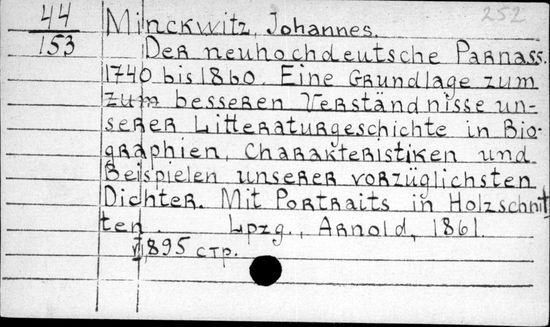 44
153
252
Minckwitz, Johannes.
Der neuhochdeutsche Parnass.
1740 bis 1860. Eine Grundlage zum
zum besseren Verständnisse un-
serer Litteraturgeschichte in Bio-
graphien, Charakteristiken und
Beispielen unserer vorzüglichsten
Dichter. Mit Portraits in Holzschnit
ten. Lpzg., Arnold, 1861.
895 стр.